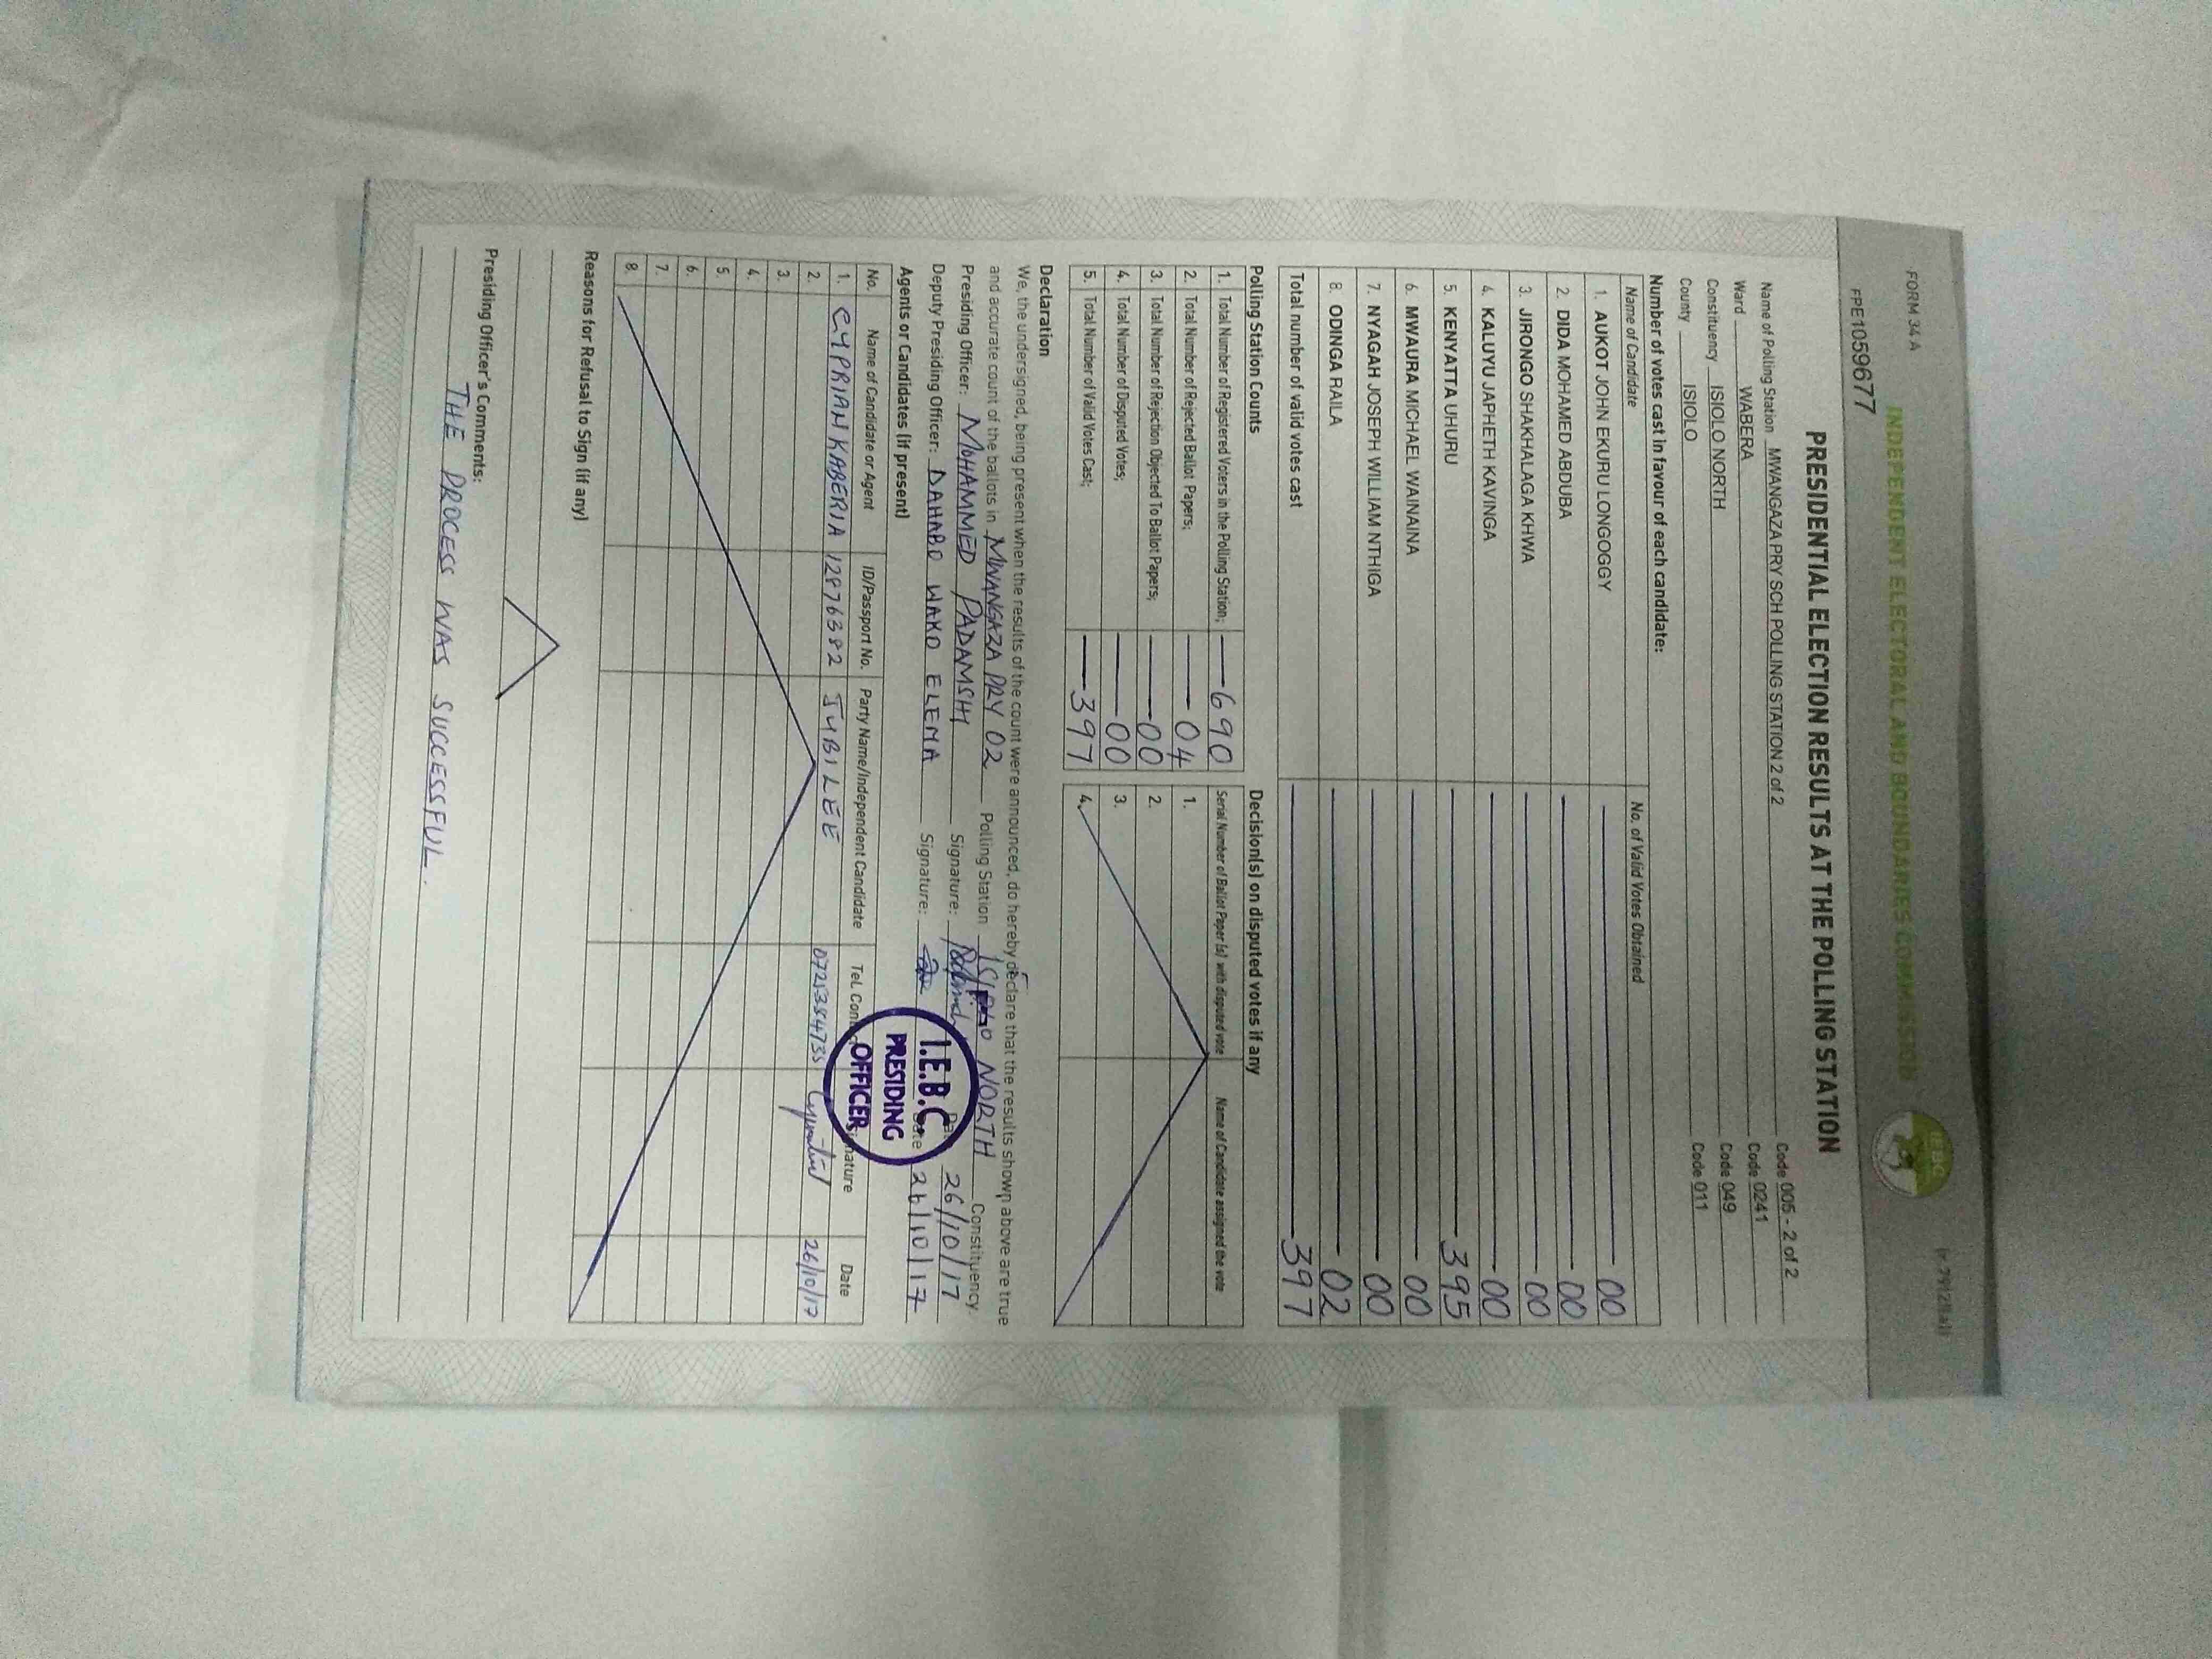 FORM 34 A
(r.79(2)(a))
INDEPENDENT ELECTORAL AND BOUNDARIES COMMISSION
IEBC
FPE1059677
PRESIDENTIAL ELECTION RESULTS AT THE POLLING STATION
Name of Polling Station MWANGAZA PRY SCH POLLING STATION 2 of 2 Code 005 - 2 of 2
Ward WABERA Code 0241
Constituency ISIOLO NORTH Code 049
County ISIOLO Code 011
Number of votes cast in favour of each candidate:
Name of Candidate No. of Valid Votes Obtained
1. AUKOT JOHN EKURU LONGOGGY 00
2. DIDA MOHAMED ABDUBA 00
3. JIRONGO SHAKHALAGA KHWA 00
4. KALUYU JAPHETH KAVINGA 00
5. KENYATTA UHURU 395
6. MWAURA MICHAEL WAINAINA 00
7. NYAGAH JOSEPH WILLIAM NTHIGA 00
8. ODINGA RAILA 02
Total number of valid votes cast 397
Polling Station Counts Decision(s) on disputed votes if any
1. Total Number of Registered Voters in the Polling Station; 690 Serial Number of Ballot Paper (s) with disputed vote Name of Candidate assigned the vote
2. Total Number of Rejected Ballot Papers; 04 1.
3. Total Number of Rejection Objected To Ballot Papers; 00 2.
4. Total Number of Disputed Votes; 00 3.
5. Total Number of Valid Votes Cast; 397 4.
Declaration
We, the undersigned, being present when the results of the count were announced, do hereby declare that the results shown above are true
and accurate count of the ballots in MWANGAZA PRY 02 Polling Station ISIOLO NORTH Constituency.
Presiding Officer: MOHAMMED PADAMSHI Signature: 26/10/17
Deputy Presiding Officer: DAHABO WAKO ELEMA Signature: Date 26/10/17
I.E.B.C.
PRESIDING
OFFICER
Agents or Candidates (if present)
No. Name of Candidate or Agent ID/Passport No. Party Name/Independent Candidate Tel. Signature Date
1. CYPRIAN KABERIA 12876382 JUBILEE 0721354735 26/10/17
2.
3.
4.
5.
6.
7.
8.
Reasons for Refusal to Sign (if any)
Presiding Officer's Comments:
THE PROCESS WAS SUCCESSFUL.